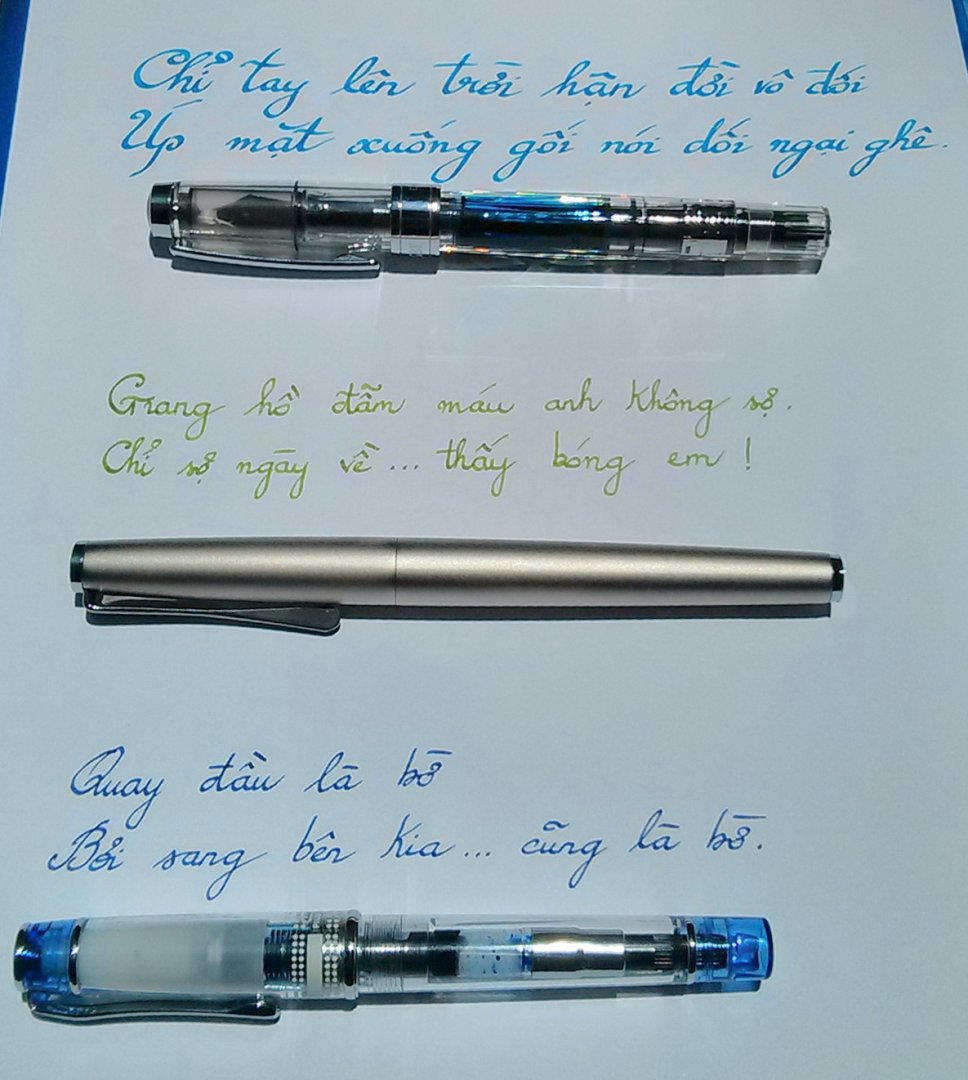 Chỉ tay lên trời hận đời vô đối
Úp mặt xuống gối nói dối ngại ghê.
Giang hồ đẫm máu anh không sợ.
Chỉ sợ ngày về... thấy bóng em!
Quay đầu là bờ
Bơi sang bên kia... cũng là bờ.